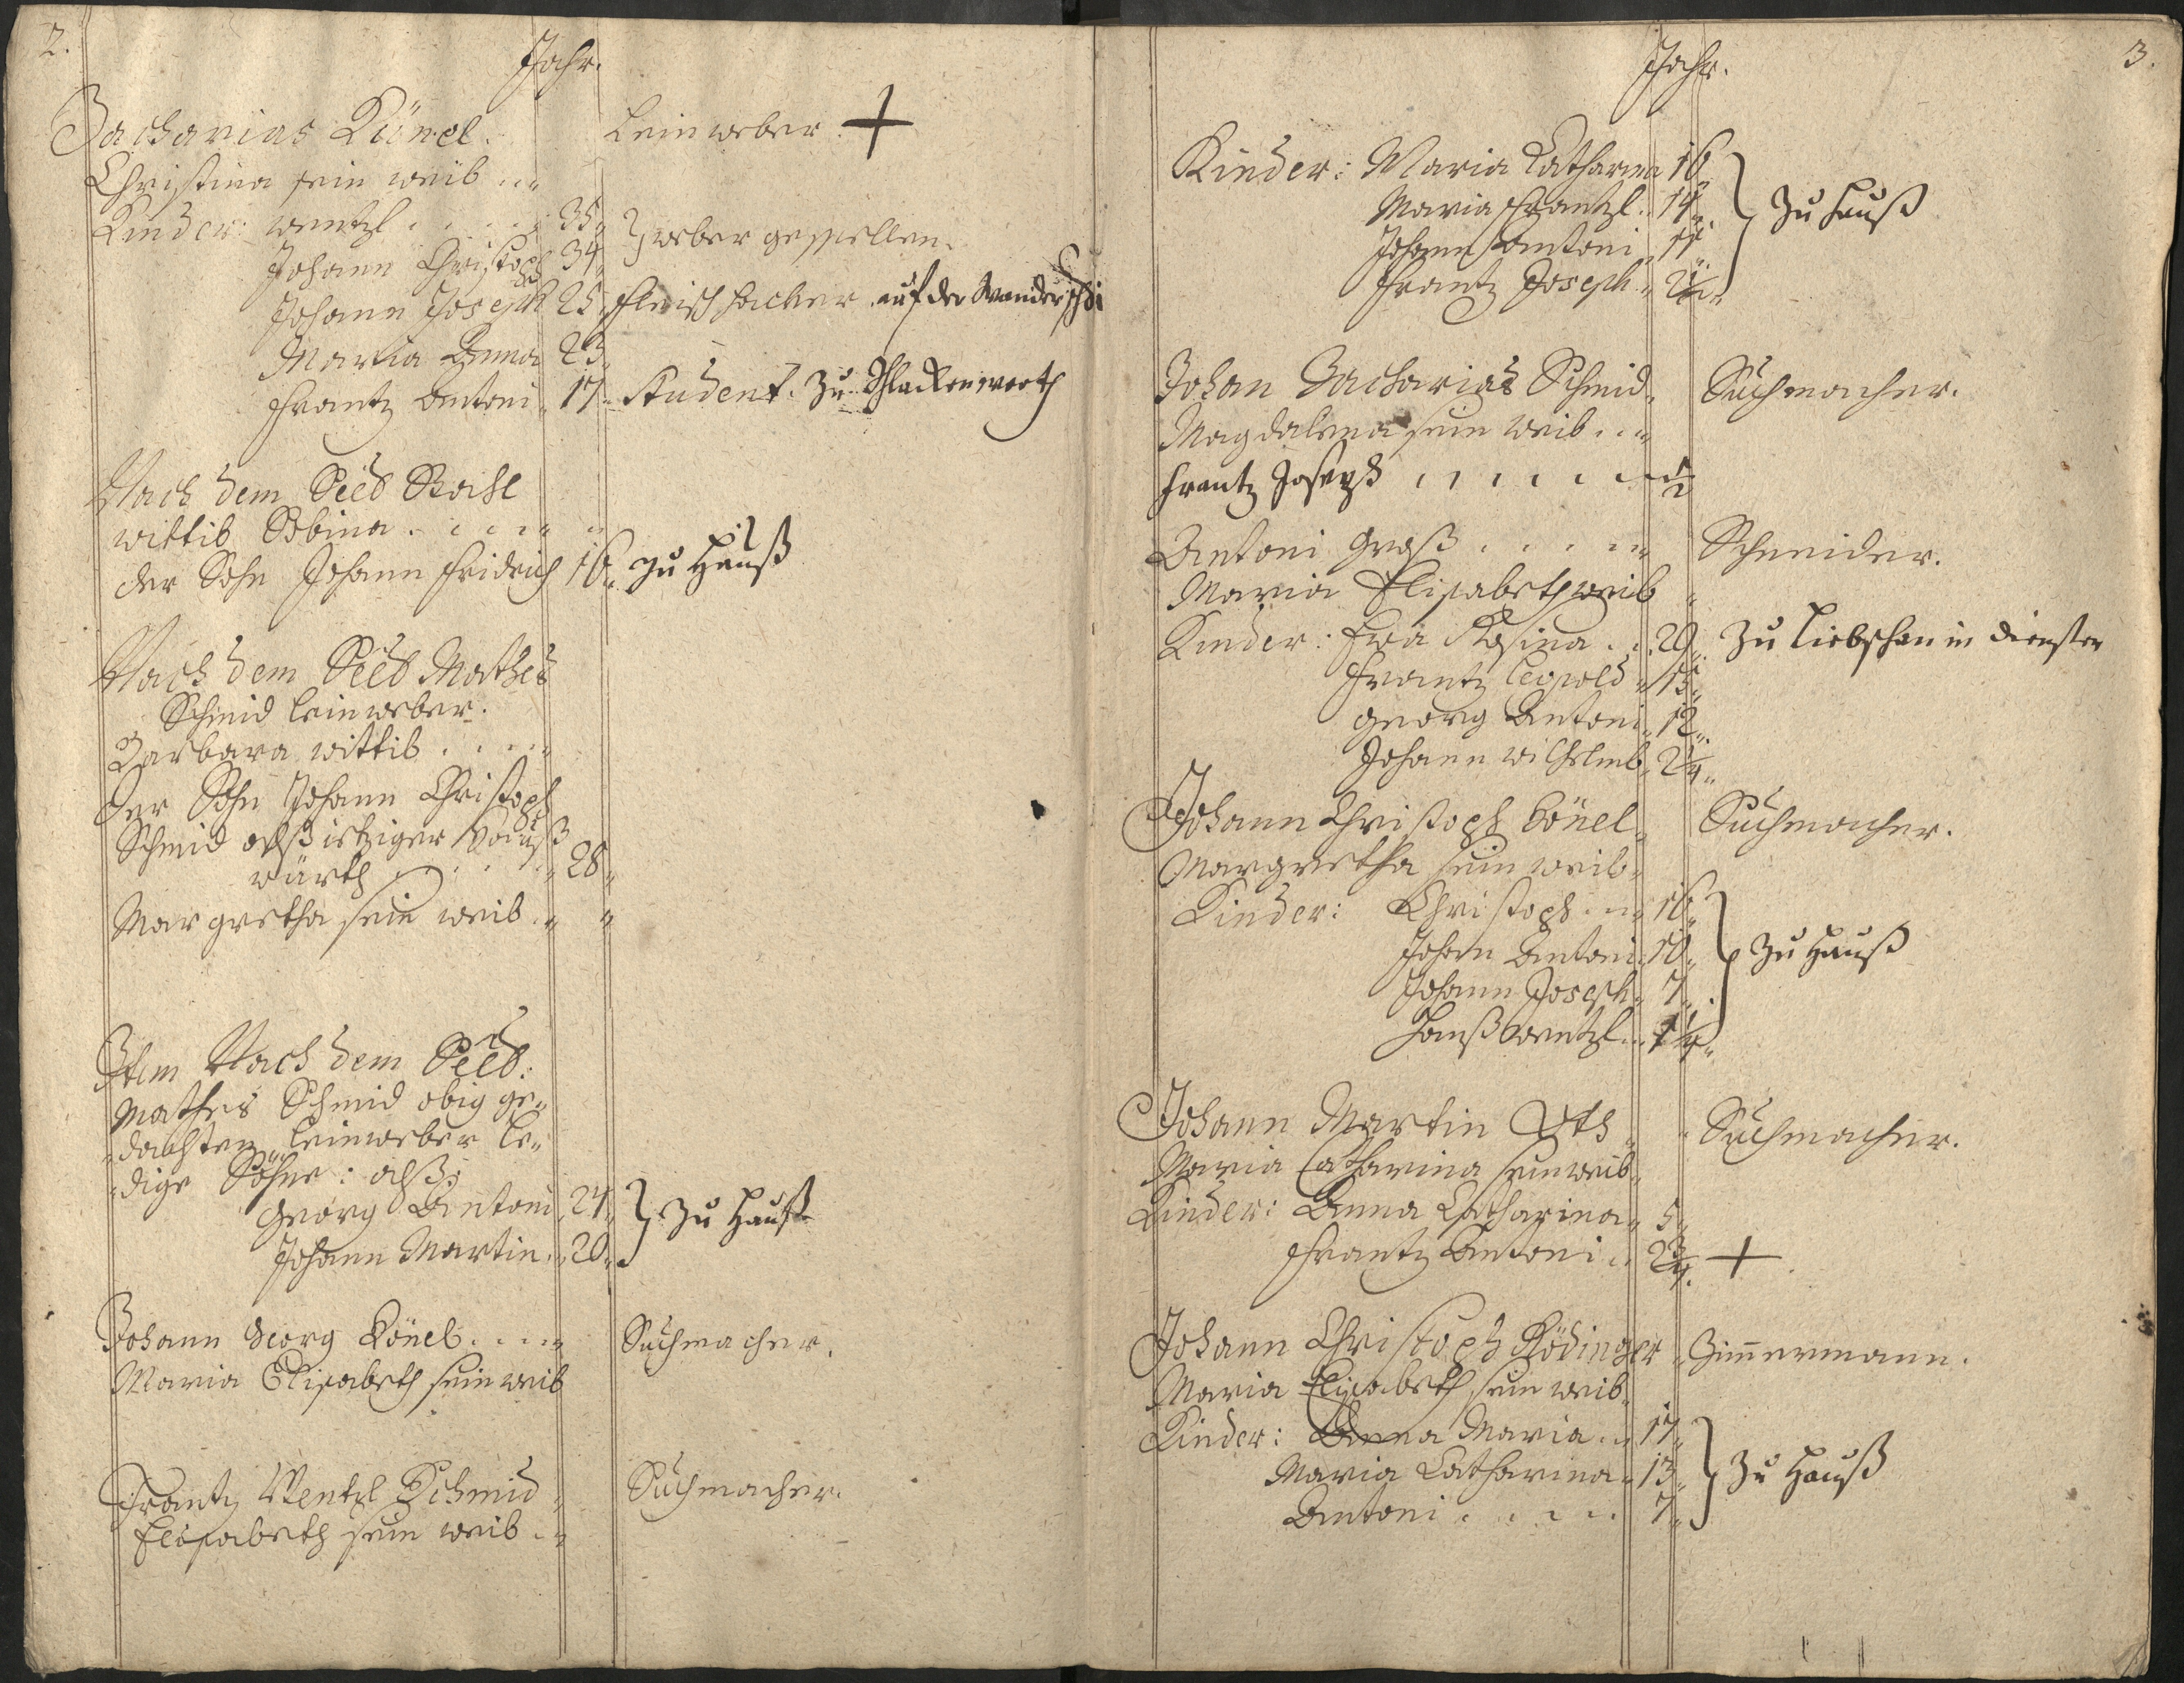 2.
Jahr.
Zacharias Lönel. Leinweber. +
Christina sein weib
Kinder: wentzl 35 } weber gesellen.
Johann Christoph 34
Johann Joseph 25 fleischhacker auf der Wanderschafft
Maria Anna 23
Frantz Antoni 17 Student. Zu Schlackenwerth
Nach dem Seel:
wittib Sabina
der Sohn Johann Fridrich 16 zu Hauß
Nach dem Seel: Mathes
Schmid leinweber.
Barbara wittib
der Sohn Johann Christoph
Schmid alß itziger Hauß
würth 28
Margretha sein weib
Item Nach dem Seel:
Mathes Schmid obig ge-
dachten leinweber le-
dige Söhne: alß:
Georg Antoni 24 } Zu Hauß
Johann Martin 20
Johann Georg Lönel Tuchmacher.
Maria Elisabeth sein weib
Frantz Wentzl Schmid Tuchmacher.
Elisabeth sein weib
3.
Jahr.
Kinder: Maria Catharina 16 } Zu Hauß
Maria Frantzl. 14
Johann Antoni 11
Frantz Joseph 2 1/2
Johan Zacharias Schmid Tuchmacher.
Magdalena sein weib
Frantz Joseph 1/2
Antoni Groß Schneider.
Maria Elisabeth weib
Kinder: Eva Rosina 20 Zu Liebschan in diensten
Frantz Leopold 15
Georg Antoni 12
Johann Wilhelmb 2 1/4
Johann Christoph Lönel Tuchmacher.
Margretha sein weib
Kinder: Christoph 16 } Zu Hauß
Johan Antoni 10
Johann Joseph 7
Hanß Wentzl 1 1/4
Johann Martin Uth Tuchmacher.
Maria Catharina sein weib
Kinder: Anna Catharina 5
Frantz Antoni 2 3/4 +
Johann Christoph Rödinger Zimmermann.
Maria Elisabeth sein weib
Kinder: Anna Maria 17 } Zu Hauß
Maria Catharina 13
Antoni 7